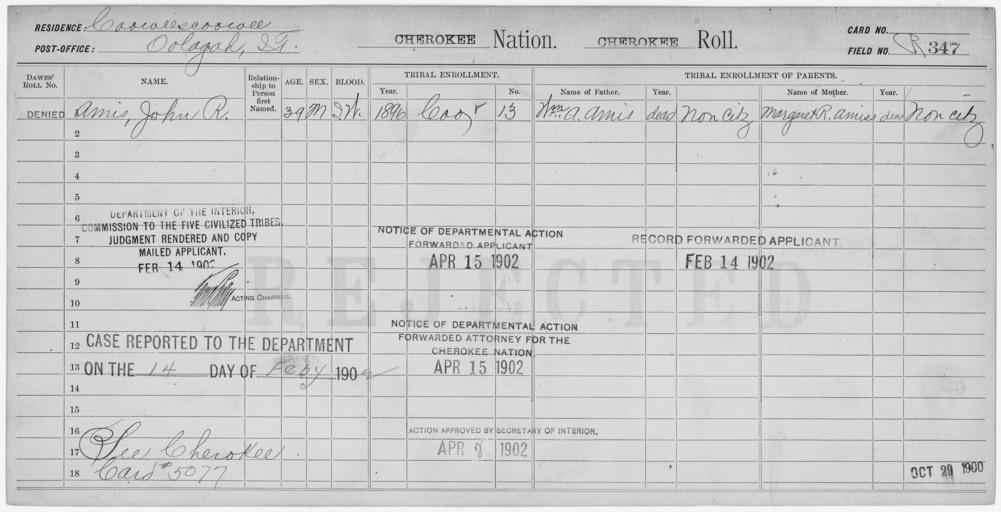 RESIDENCE: Coowescoowee
POST-OFFICE: Oolagah, I.T.
CHEROKEE Nation. CHEROKEE Roll.
CARD NO.
FIELD NO. R 347
DAWES' ROLL NO.
NAME.
Relationship to Person first Named.
AGE. SEX. BLOOD.
TRIBAL ENROLLMENT.
Year. No.
TRIBAL ENROLLMENT OF PARENTS.
Name of Father. Year. Name of Mother. Year.
DENIED Amis, John R. 39 M I.W. 1896 Coo 13 Wm. A. Amis dead Non Citz Margaret R. Amis dead Non Citz
2
3
4
5
6
7
8
9
10
11
12
13
14
15
16
17
18
DEPARTMENT OF THE INTERIOR,
COMMISSION TO THE FIVE CIVILIZED TRIBES.
JUDGMENT RENDERED AND COPY
MAILED APPLICANT.
FEB 14 1902
ACTING CHAIRMAN.
NOTICE OF DEPARTMENTAL ACTION
FORWARDED APPLICANT
APR 15 1902
RECORD FORWARDED APPLICANT.
FEB 14 1902
REJECTED
CASE REPORTED TO THE DEPARTMENT
ON THE 14 DAY OF Feby 1902
NOTICE OF DEPARTMENTAL ACTION
FORWARDED ATTORNEY FOR THE
CHEROKEE NATION.
APR 15 1902
ACTION APPROVED BY SECRETARY OF INTERIOR.
APR 8 1902
See Cherokee
Card #5077
OCT 29 1900